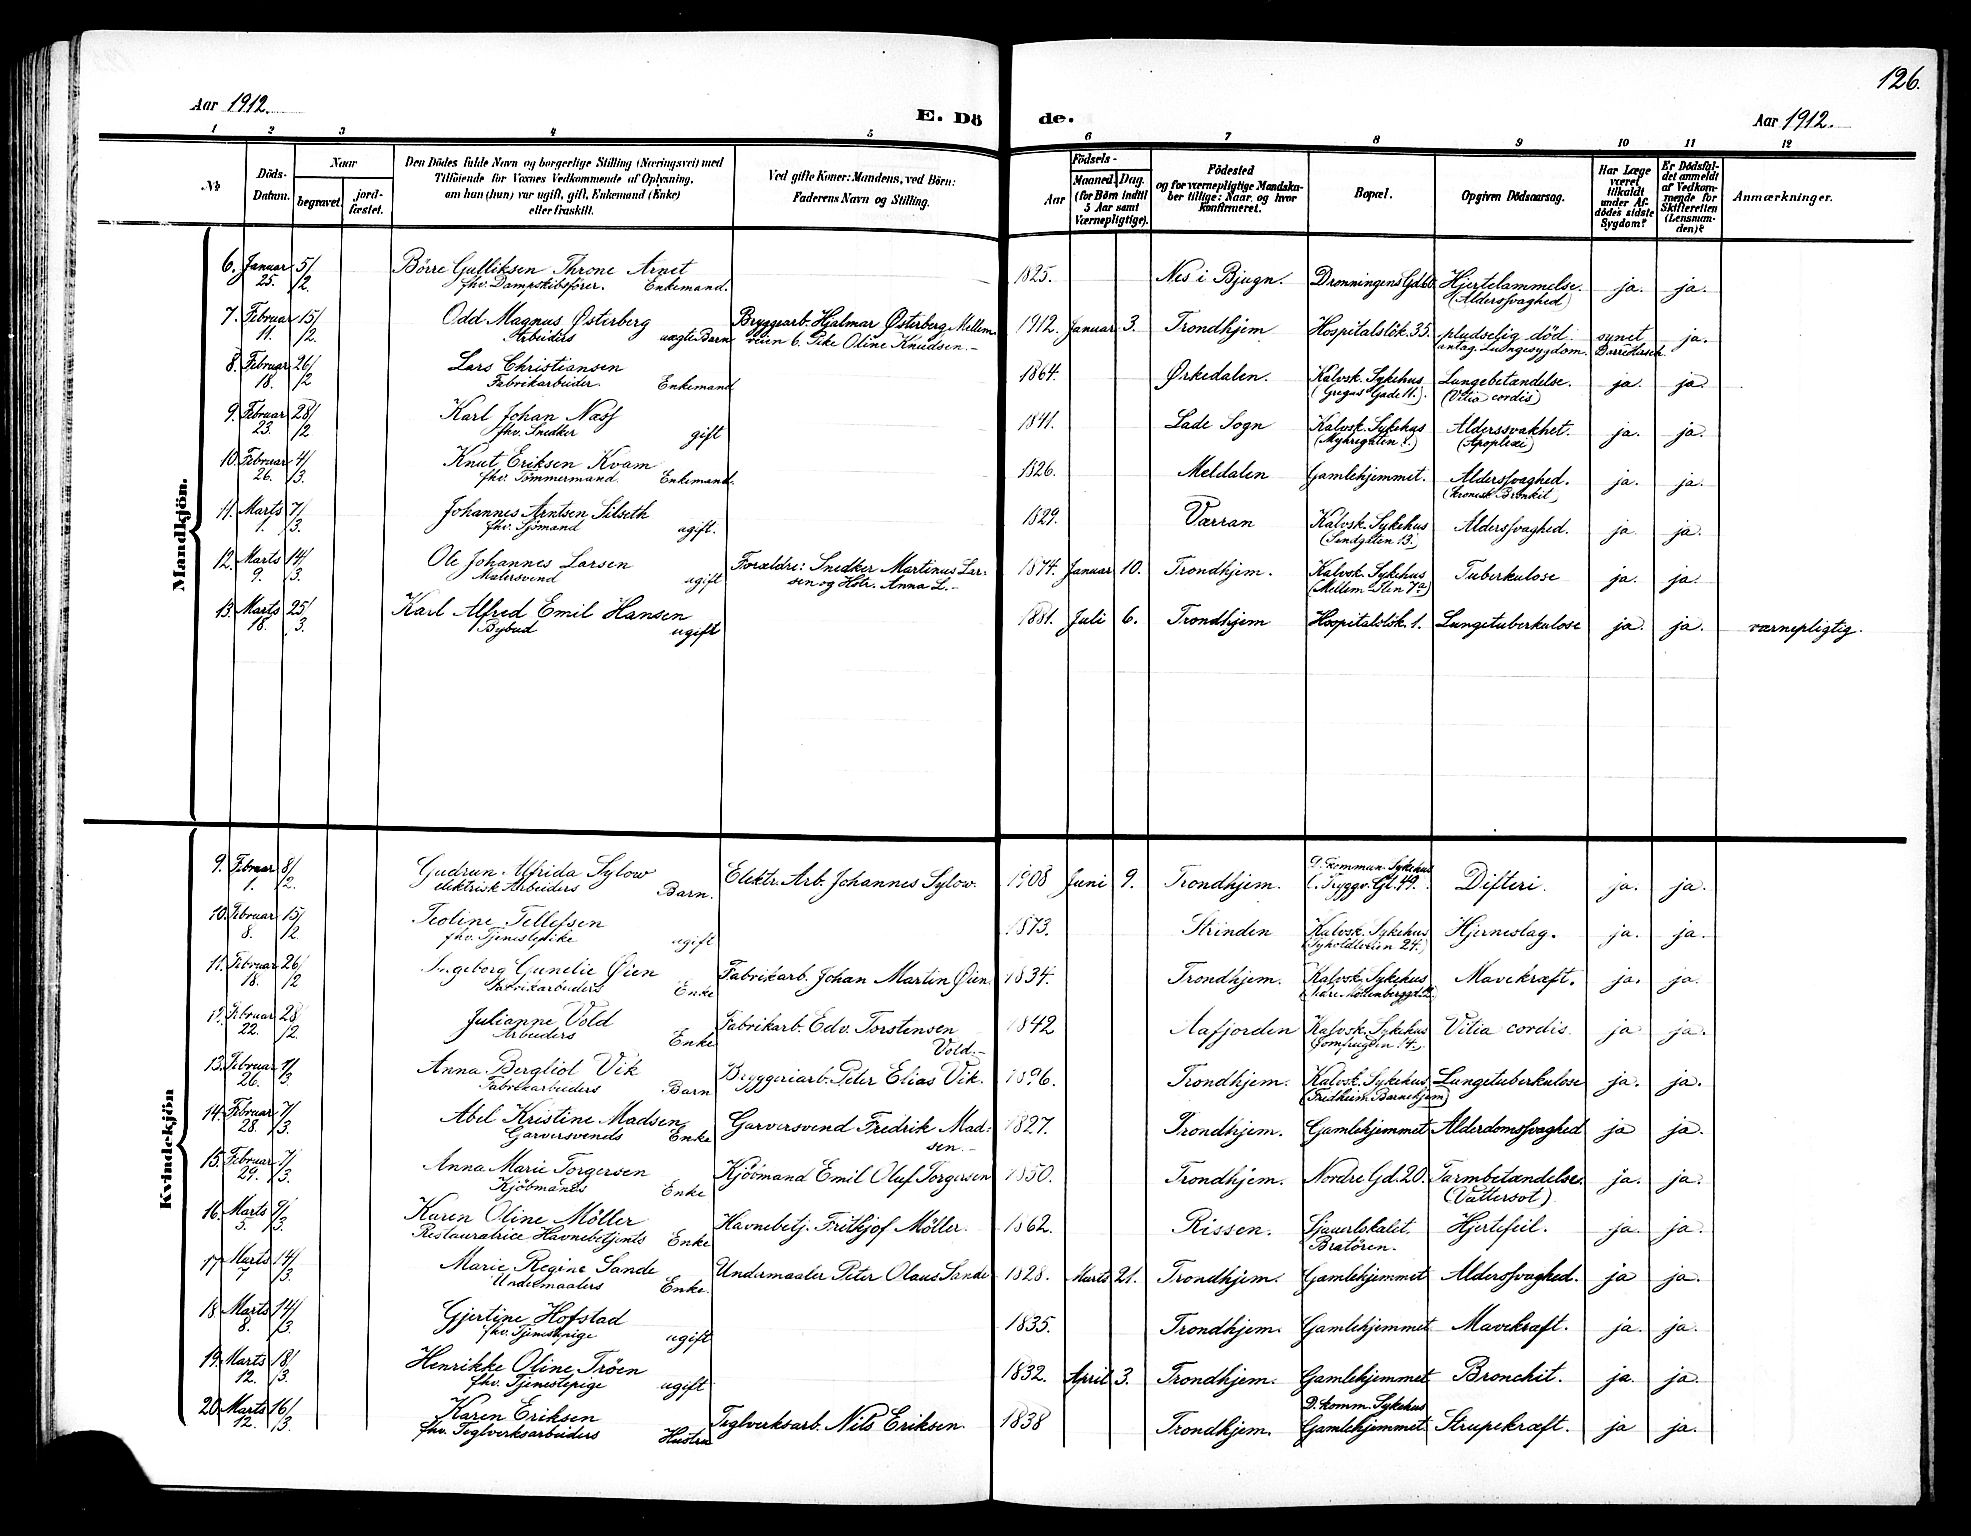 126.
Aar 1912.
E. Dö de.
Aar 1912.
1 2 3 4 5 6 7 8 9 10 11 12
No
Döds-Datum.
Naar
begravet.
jord-fæstet.
Den Dödes fulde Navn og borgerlige Stilling (Næringsvei) med
Tilföiende for Voxnes Vedkommende af Oplysning,
om han (hun) var ugift, gift, Enkemand (Enke)
eller fraskilt.
Ved gifte Koner: Mandens, ved Börn:
Faderens Navn og Stilling.
Födsels-
Aar
Maaned. Dag.
(for Börn indtil
5 Aar samt
Værnepligtige).
Födested
og for værnepligtige Mandska-
ber tillige: Naar og hvor
konfirmeret.
Bopæl.
Opgiven Dödsaarsag.
Har Læge
været
tilkaldt
under Af-
dödes sidste
Sygdom?
Er Dödsfal-
det anmeldt
af Vedkom-
mende for
Skifteretten
(Lensman-
den)?
Anmærkninger.
Mandkjön.
6. Januar 5/ Börre Gulliksen Throne Arnet 1825. Nes i Bjugn. Dronningens Gd 60 Hjertelammelse. ja. ja.
25. /2. fhv. Dampskibsförer. Enkemand. (Aldersvaghed)
7. Februar 15/ Odd Magnus Østerberg Bryggearb. Hjalmar Østerberg, Mellem 1912. Januar 3. Trondhjem Hospitalslök. 35. pludselig död. synet ja.
11. /2. Arbeiders uægte Barn veien 6. Pike Oline Knudsen.- antag. Lungesygdom.
8. Februar 26/ Lars Christiansen 1864. Ørkedalen. Kalvsk. Sykehus Lungebetændelse. ja. ja.
18. /2 Fabrikarbeider. Enkemand (Gregus Gade 11.) (Vitia cordis)
9. Februar 28/ Karl Johan Næss 1841. Lade Sogn Kalvsk. Sykehus Alderssvakhet. ja. ja.
23. /2 fhv. Snedker gift (Myhregaten .) (Apoplexi)
10. Februar 4/ Knut Eriksen Kvam 1826. Meldalen Gamlehjemmet. Alderssvaghed. ja. ja.
26. /3. fhv. Tömmermand. Enkemand. (Kronisk Bronkit)
11. Marts 7/ Johannes Arntsen Silseth 1829. Værran Kalvsk. Sykehus Alderssvaghed. ja. ja.
1. /3. fhv. Sjömand ugift. (Sandgaten 13.)
12. Marts 14/ Ole Johannes Larsen Forældre: Snedker Martinus Lar- 1874. Januar 10. Trondhjem. Kalvsk. Sykehus Tuberkulose ja. ja.
9. /3. Malersvend ugift sen og Hstr. Anna L.- (Mellem Iten 7a)
13. Marts 25/ Karl Alfred Emil Hansen 1881. Juli 6. Trondhjem Hospitalslök. 1. Lungetuberkulose ja. ja. værnepligtig.
18. /3. Bybud ugift
Kvindekjön
9. Februar 8/ Gudrun Alfrida Sylow Elektr. Arb. Johannes Sylow. 1908 Juni 9. Trondhjem. D. Kommun. Sykehus Difteri. ja. ja.
1. /2. elektrisk Arbeiders Barn. (. Tryggv. Gt. 49.
10. Februar 15/ Teoline Tellefsen 1873. Strinden Kalvsk. Sykehus Hjerneslag. ja. ja.
8. /2 fhv. Tjenestepike ugift (Nyholdtveien 24.)
11. Februar 26/ Ingeborg Gunelie Øien Fabrikarb. Johan Martin Øien. 1834. Trondhjem. Kalvsk. Sykehus Mavekræft. ja. ja.
18. /2 Fabrikarbeiders Enke
12. Februar 28/ Julianne Vold Fabrikarb. Edv. Torstensen 1842 Aafjorden Kalvsk. Sykehus Vitia cordis. ja ja.
22. /2. Arbeiders Enke Vold.-
13. Februar 1/ Anna Bergliot Vik Bryggeriarb. Peter Elias Vik. 1896. Trondhjem. Kalvsk. Sykehus Lungetuberkulose ja. ja.
26. /3 Fabrikarbeiders Barn (Fredheim Barnehjem)
14. Februar 7/ Abel Kristine Madsen Garversvend Fredrik Mad- 1827. Trondhjem. Gamlehjemmet Alderdomssvaghed ja ja.
28. /3. Garversvends Enke sen.-
15. Februar 7/ Anna Marie Torgersen Kjöbmand Emil Oluf Torgersen 1850. Trondhjem. Nordre Gd. 20. Tarmbetændelse. ja. ja.
29. /3. Kjöbmands Enke (Vattersot)
16. Marts 9/ Karen Oline Möller Havnebetj. Fritkjof Möller. 1862. Rissen. Sjauerlokalet. Hjertefeil. ja. ja.
5. /3. Restauratrice Havnebetjents Enke Bratören.
17 Marts 14/ Marie Regine Sande Undermaaler Peter Olaus Sande 1828. Marts 21. Trondhjem. Gamlehjemmet Alderssvaghed. ja ja.
7 /3. Undermaalers Enke.
18 Marts 14/ Gjertine Hofstad 1835. Trondhjem. Gamlehjemmet Mavekræft. ja. ja.
8. /3. fhv. Tjenestepige ugift
19. Marts 18/ Henrikke Oline Tröen 1832. April 3. Trondhjem. Gamlehjemmet Bronchit. ja. ja.
12. /3. fhv. Tjenestepige ugift
20. Marts 16/ Karen Eriksen Teglverksarb. Nils Eriksen. 1838 Trondhjem. D. komm. Sykehus Strupekræft. ja ja.
12. /3. fhv. Teglverksarbeiders Hustru Gamlehjemmet